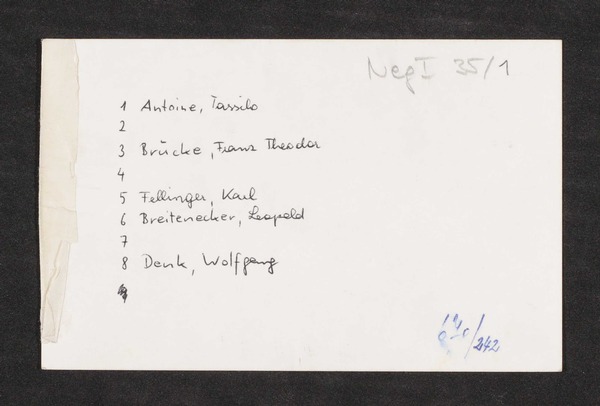 Neg I 35/1
1 Antoine, Tassilo
2
3 Brücke, Franz Theodor
4
5 Fellinger, Karl
6 Breitenecker, Leopold
7
8 Denk, Wolfgang
/242